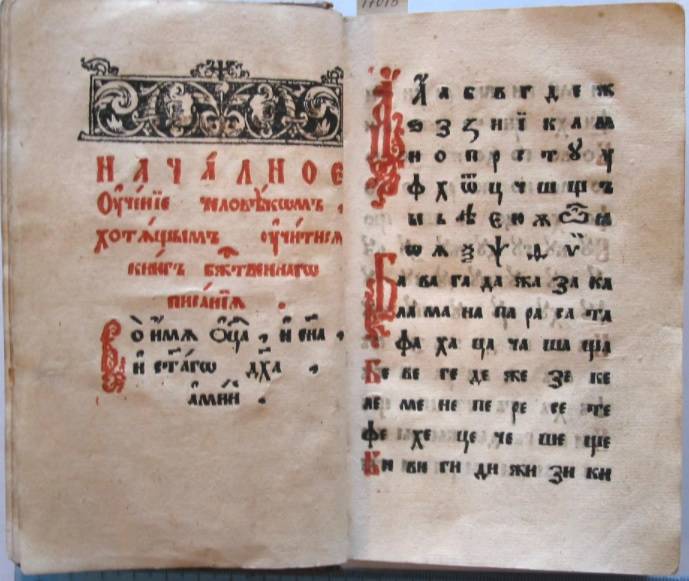 17015
НАЧА́ЛНОЕ
Ѹ҆че́нїе человѣ́кѡмъ,
хотѧ́щымъ ѹ҆чи́тисѧ
книгъ бж҃твеннагѡ
писа́нїѧ .
Во̀ и҆́мѧ ѻ҆ц҃а̀, и҆ сн҃а,
и҆ ст҃а́гѡ дх҃а,
а҆ми́нь .
А҆ а б в г д е ж
ѕ з ꙁ н ї к л м
н о п р с т ꙋ у
ф х ѿ ц ч ш щ ъ
ы ь ѣ є ю ѫ ѽ ꙗ
ѡ ѧ ѯ ѱ ѳ ѵ
Ба ва га да жа за ка
ла ма на па ра са та
фа ха ца ча ша ща
Бе ве ге де же зе ке
ле ме не пе ре се те
фе хе це че ше ще
Би ви ги ди жи зи ки